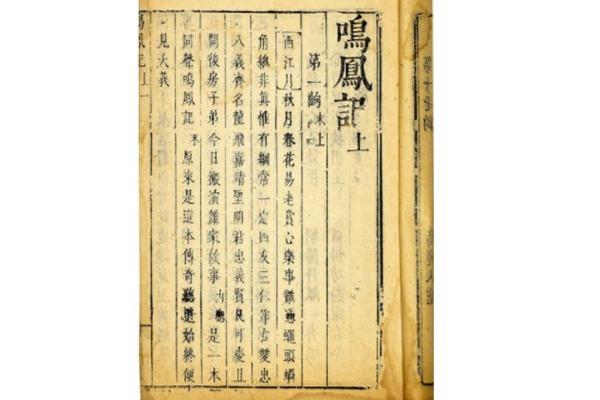 鳴鳳記上
第一齣 末上
西江月 秋月春花易老賞心樂事難憑蠅頭蝸
角總非真惟有綱常一定四友三仁作古雙忠
八義齊名龍飛嘉靖聖明君忠義賢良可慶且
問後房子弟今日搬演誰家故事 內應 是一本
同聲鳴鳳記 末 原來是這本傳奇聽道始終便
見大義
鳳記上 一